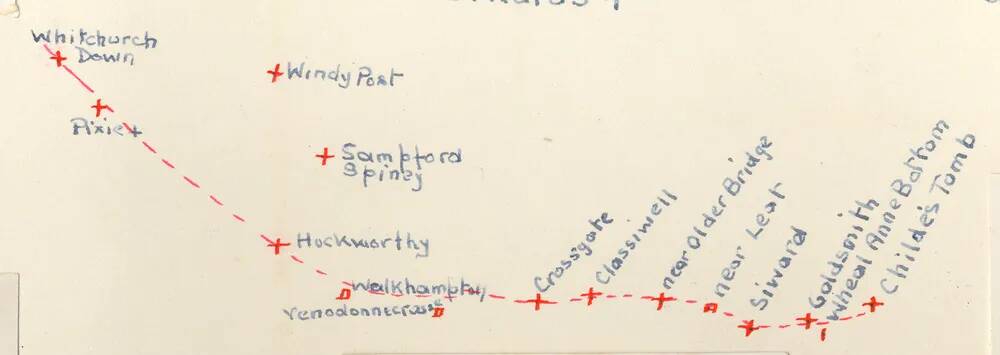 Whitchurch
Down
Windy Post
Pixie +
Sampford
Spiney
Hockworthy
Walkhampton
Yanedonnecrosse
Crossgate
Classiwell
near Older Bridge
near Leat
Siward
Goldsmith
Wheal Anne Bottom
Childe's Tomb